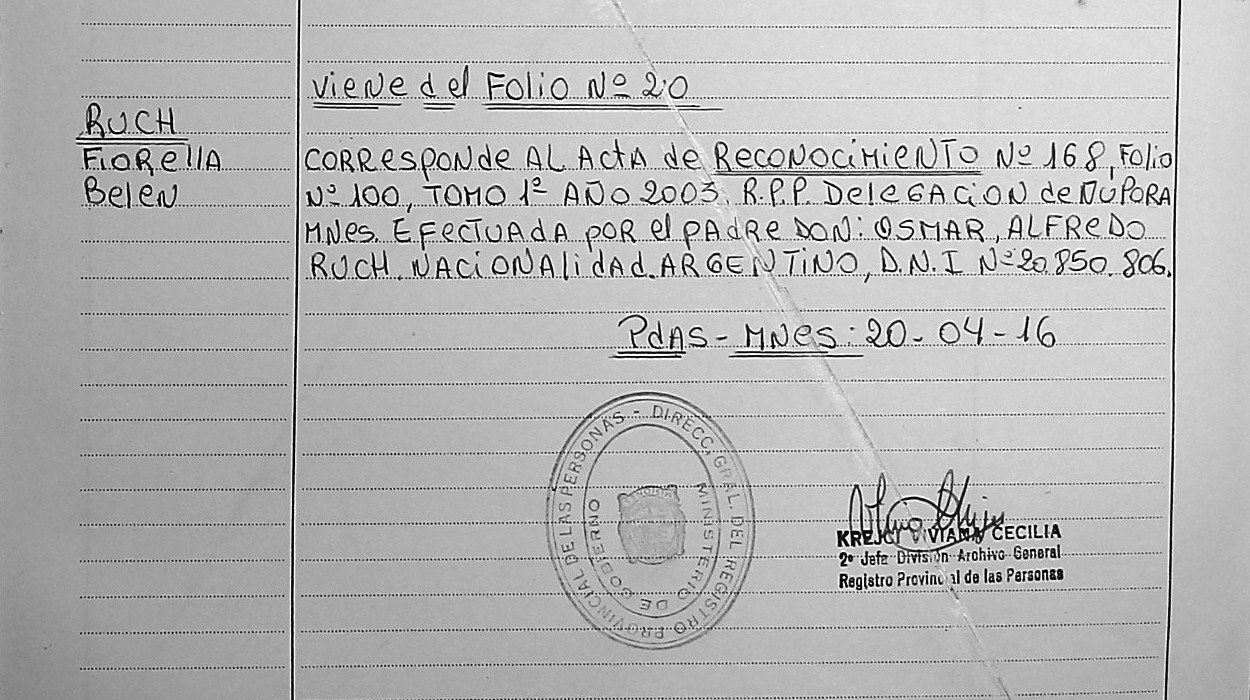 Viene del Folio Nº 20
RUCH
Fiorella
Belen
CORResponde AL Acta de Reconocimiento Nº 168, Folio
Nº 100, TOMO 1º AÑO 2003. R.P.P. Delegacion de ÑUPORA
MNes. Efectuada por el padre DON: OSMAR, ALFREDO
RUCH. NACIONALidad. ARGENTINO, D.N.I Nº 20.850.806.
PdAS - MNes: 20-04-16
DIRECC. GRAL. DEL REGISTRO PROVINCIAL DE LAS PERSONAS -
MINISTERIO DE GOBIERNO
KREJCI VIVIANA CECILIA
2º Jefe División Archivo General
Registro Provincial de las Personas